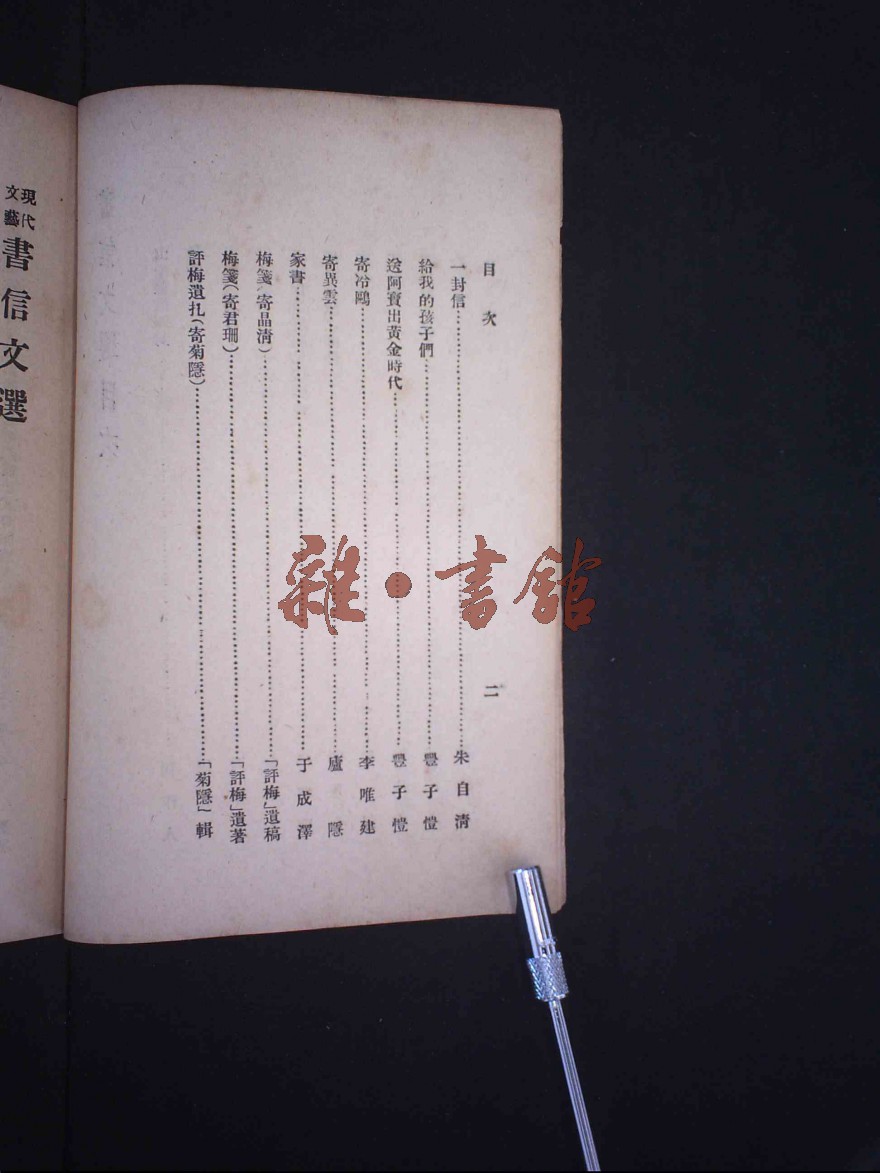 目次
二
一封信……朱自清
給我的孩子們……豐子愷
送阿寶出黃金時代……豐子愷
寄冷鷗……李唯建
寄異雲……廬隱
家書……于成澤
梅箋（寄晶清）……「評梅」遺稿
梅箋（寄君珊）……「評梅」遺著
評梅遺扎（寄菊隱）……「菊隱」輯
現代
文藝
書信文選
雜·書館